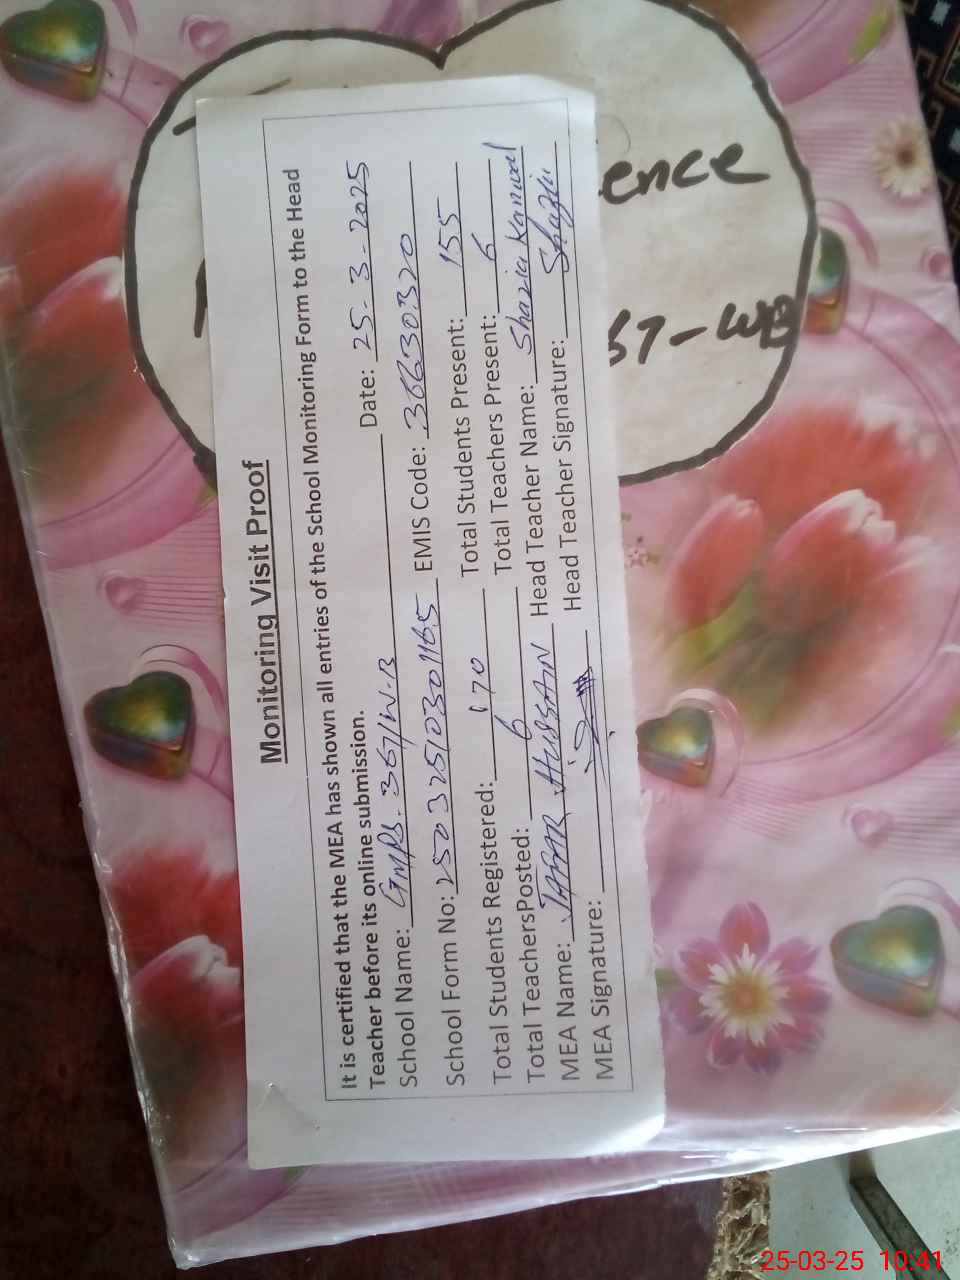 Monitoring Visit Proof
It is certified that the MEA has shown all entries of the School Monitoring Form to the Head
Teacher before its online submission.
School Name: GMPS. 367/W.B Date: 25-3-2025
School Form No: 25032510301165 EMIS Code: 36630320
Total Students Registered: 170 Total Students Present: 155
Total TeachersPosted: 6 Total Teachers Present: 6
MEA Name: JAFAR HUSSAN Head Teacher Name: Shazia Kanwal
MEA Signature: Head Teacher Signature: Shazia
ence
67-WB
25-03-25 10:41